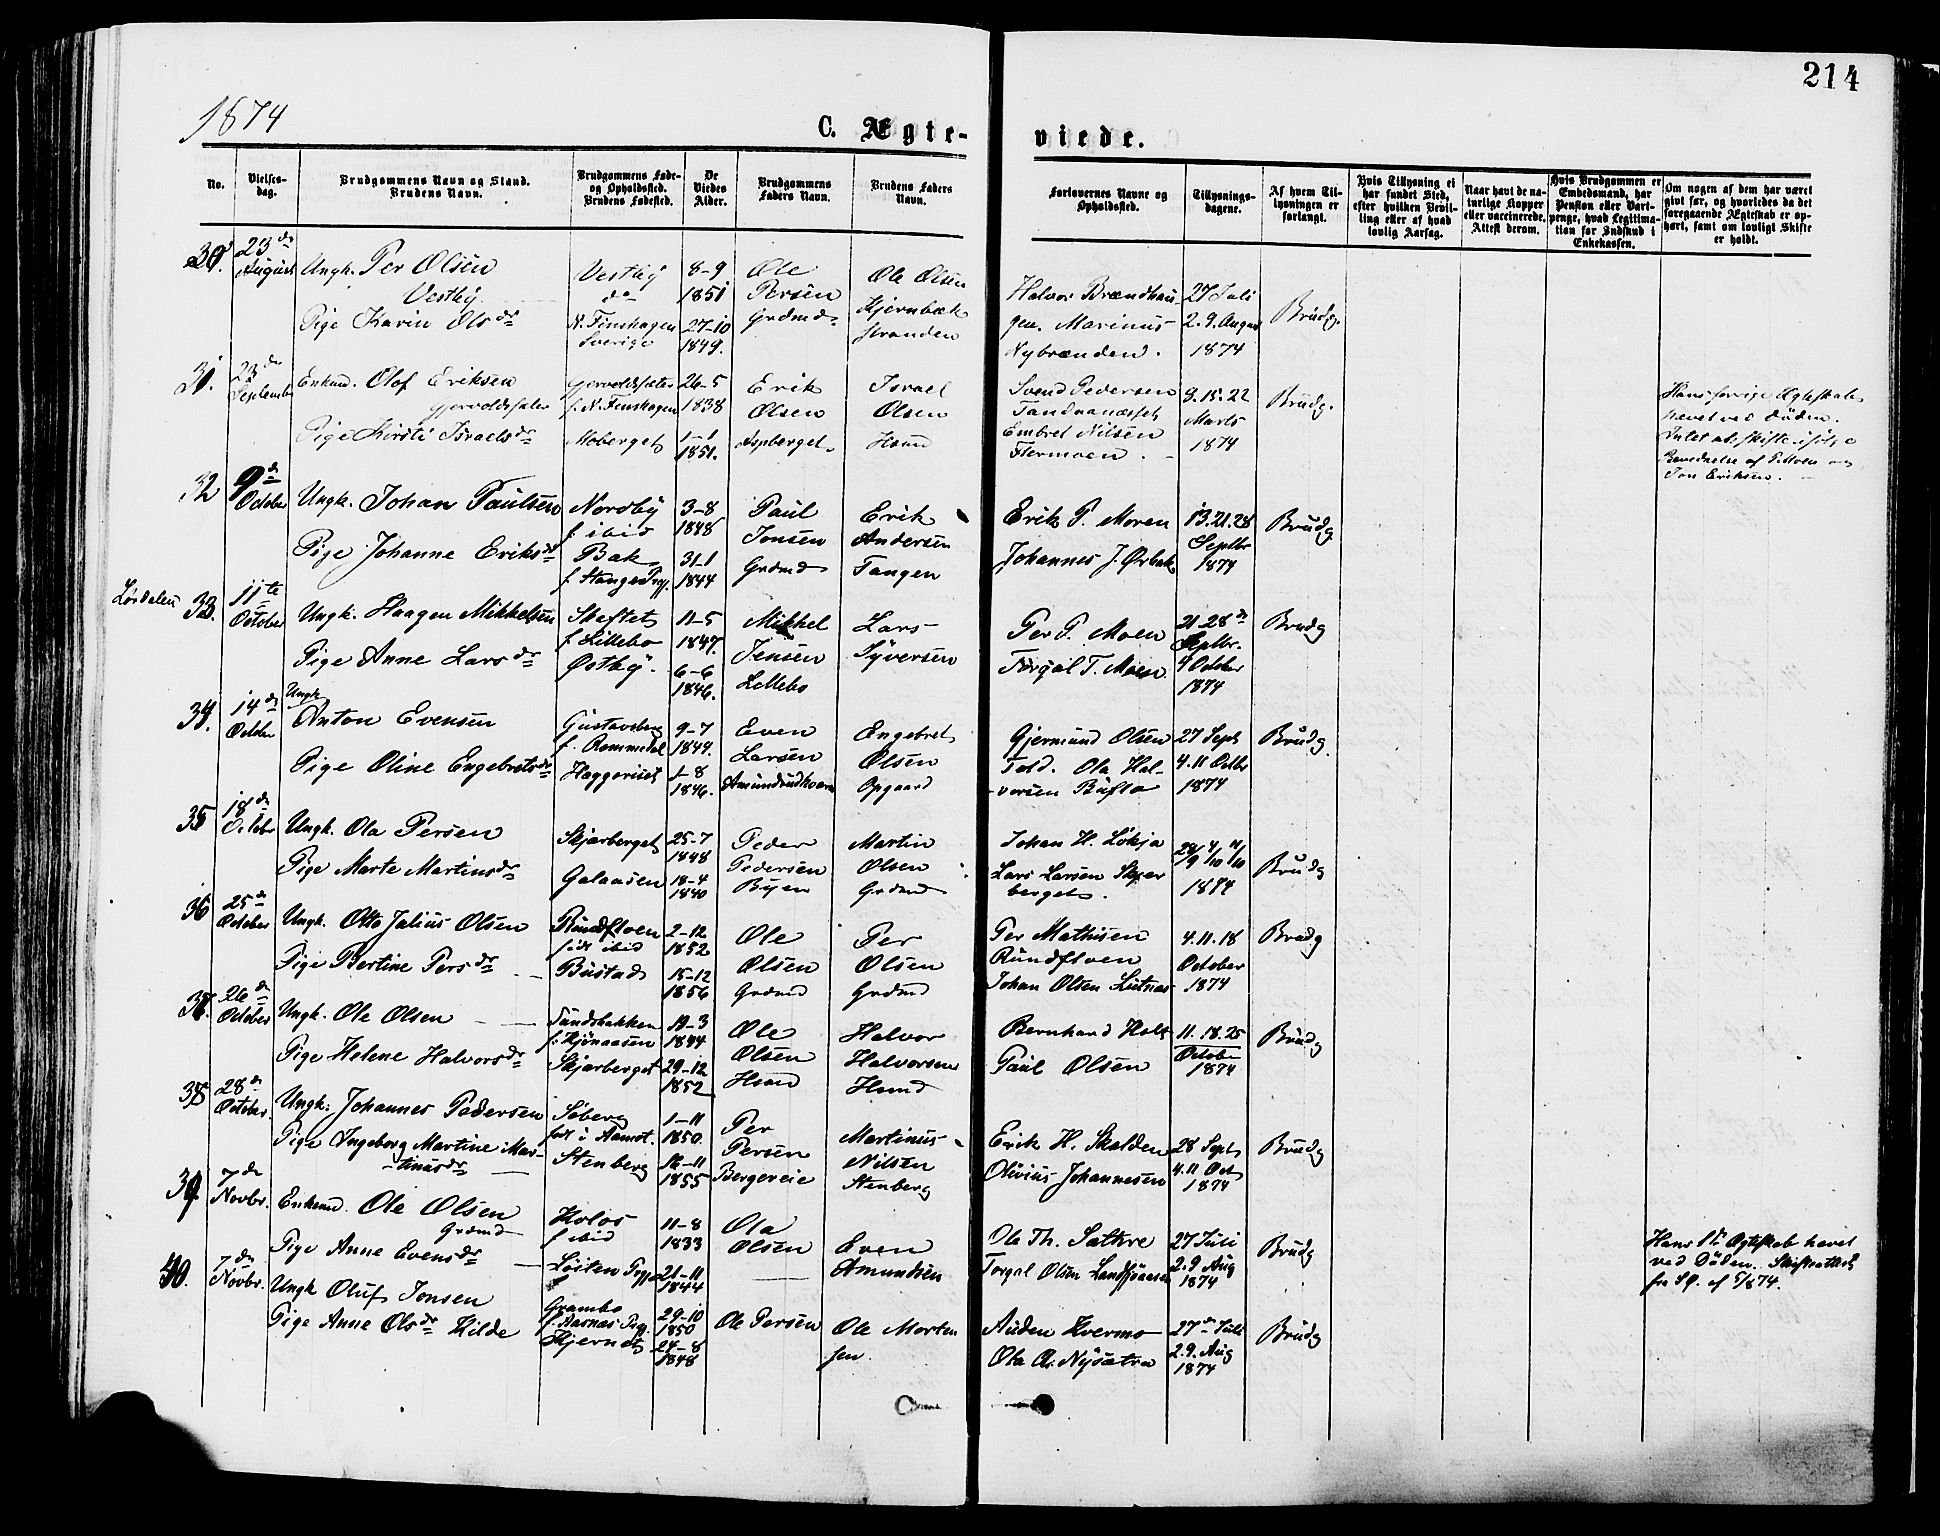 214
1874
C. Ægte-
viede.
No.
Vielses-
dag.
Brudgommens Navn og Stand.
Brudens Navn.
Brudgommens Føde-
og Opholdssted.
Brudens Fødested.
De
Viedes
Alder.
Brudgommens
Faders Navn.
Brudens Faders
Navn.
Forlovernes Navne og
Opholdssted.
Tillysnings-
dagene.
Af hvem Til-
lysningen er
forlangt.
Hvis Tillysning ei
har fundet Sted,
efter hvilken Bevil-
ling eller af hvad
lovlig Aarsag.
Naar havt de na-
turlige Kopper
eller vaccinerede.
Attest derom.
Hvis Brudgommen er
Embedsmand, har
Pension eller Vart-
penge, hvad Legitima-
tion for Indskud i
Enkekassen.
Om nogen af dem har været
gift før, og hvorledes da det
foregaaende Ægteskab er op-
hørt, samt om lovligt Skifte
er holdt.
30.
23de
August
Ungk. Per Olsen
Vestby
Pige Karin Olsdr
Vestby
do
N. Finskogen
Sverige
8-9
1851
27-10
1849.
Ole
Persen
Grdmd
Ole Olsen
Kjernbæk
stranden
Halvor Brændhau-
gen. Marinus
Nybrænden.
27 Juli
2.9. August
1874
Brudg.
31.
23de
September
Enkem. Olof Eriksen
Gjervoldssæter
Pige Kirsti Israelsdr
Gjervoldssæter
f. N. Finskogen
Moberget
26-5
1838
1-1
1851.
Erik
Olsen
Aspberget
Israel
Olsen
Hsmd
Svend Pedersen
Tandaanæsset
Embret Nilsen
Flermoen.
8.15.22
Marts
1874
Brudg.
Hans forrige Ægteskab
hævet ved Døden.
Intet at skifte ifølge
P. Moen og
Jon Eriksen.
32
9de
October
Ungk. Johan Paulsen
Pige Johanne Eriksdr
Nordby
f ibid
Bak
f. Stange Prgj.
3-8
1848
31-1
1844
Paul
Jonsen
Grdmd
Erik
Andersen
Tangen
Erik P. Moren
Johannes J. Ørbak
13.21.28
Septbr
1874
Brudg
Lørdalen
33.
11te
October
Ungk. Haagen Mikkelsen
Pige Anne Larsdr
Skaftet
f. Lillebo
Østby.
11-5
1847.
6-6
1846.
Mikkel
Jensen
Lillebo
Lars
Syversen
Per P. Moen
Torgal T. Moen
21 28de
Septbr.
4 October
1874
Brudg
34.
14de
October
Ungk
Anton Evensen
Pige Oline Engebretsdr
Gustavsberg
f. Rommedal
Haggeriset
9-7
1844.
1-8
1846.
Even
Larsen
Amundrudkvern
Engebret
Olsen
Opgaard
Gjermund Olsen
Told. Ola Hal-
vorsen Bufla
27 Sept
4.11 Octbr
1874
Brudg.
35
18de
Octobr
Ungk. Ola Persen
Pige Marte Martinsdr
Skjærberget
Galaasen
25-7
1848
18-4
1840
Peder
Pedersen
Byen
Martin
Olsen
Grdmd
Johan H. Løkja
Lars Larsen Skjær
berget.
28/9 4/10 11/10
1874
Brudg
36
25de
October
Ungk. Otto Julius Olsen
Pige Bertine Persdr
Rundfloen
født ibid
Bustad
2-12
1852
15-12
1856
Ole
Olsen
Grdmd
Per
Olsen
Grdmd
Per Mathisen
Rundfloen
Johan Olsen Lutnæs
4.11.18
October
1874
Brudg
37.
26de
October
Ungk. Ole Olsen
Pige Helene Halvorsdr
Sundsbakken
f. Kjønaasen
Skjærberget
19-3
1844
29-12
1852
Ole
Olsen
Hsmd
Halvor
Halvorsen
Hsmd
Bernhard Holt
Paul Olsen
11.18.25
October
1874
Brudg
38
28de
October
Ungk: Johannes Pedersen
Pige Ingeborg Martine Mar-
tinusdr
Søberg
født i Aamot.
Stenberg
1-11
1850.
16-11
1855
Per
Persen
Bergereie
Martinus
Nilsen
Stenberg
Erik H. Skalden
Olivius Johannesen
28 Sept
4.11 Oct
1874
Brudg
39
7de
Novbr.
Enkemd. Ole Olsen
Grdmd
Pige Anne Evensdr
Holos
f ibid
Løiten Prgj
11-8
1833
21-11
1844
Ola
Olsen
Even
Amundsen
Ole Th. Sættre
Torgal Olsen Landsjøaasen
27 Juli
2.9 Aug
1874
Brudg
Hans 1ste Ægteskab hævet
ved Døden. Skifteattest
fra Sp. af 5/8 74.
40.
7de
Novbr.
Ungk Oluf Jonsen
Pige Anne Olsdr Kilde
Grambo
f. Aasnæs Prgj.
Kjernet
29-10
1850
24-8
1848
Ole Persen
Ole Morten
sen.
Auden Kvermo
Ola A. Nysætra
27de Juli
2.9. Aug
1874
Brudg